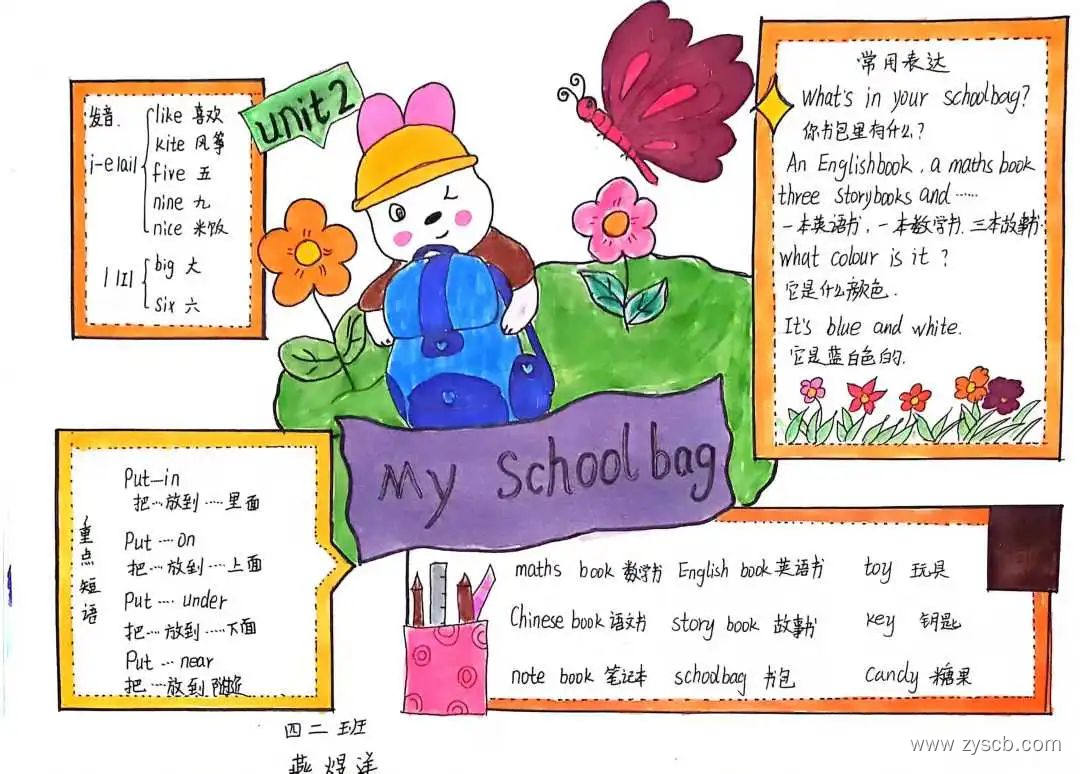 unit 2
发音.
i-e |ai|
like 喜欢
kite 风筝
five 五
nine 九
nice 米饭
i |I|
big 大
six 六
常用表达
What's in your schoolbag?
你书包里有什么?
An Englishbook, a maths book
three storybooks and ……
一本英语书, 一本数学书, 三本故事书.
what colour is it ?
它是什么颜色.
It's blue and white.
它是蓝白色的.
My schoolbag
重点短语
Put—in
把…放到……里面
Put … on
把…放到……上面
Put … under
把…放到……下面
Put … near
把…放到附近
maths book 数学书 English book 英语书 toy 玩具
Chinese book 语文书 story book 故事书 key 钥匙
note book 笔记本 schoolbag 书包 Candy 糖果
四二班
燕煜洋
www.zyscb.com